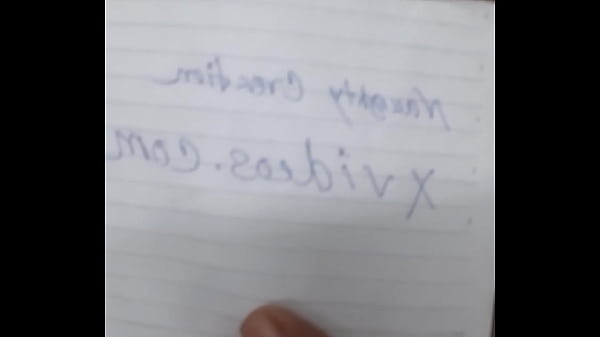 Naughty Creation
Xvideos.Com